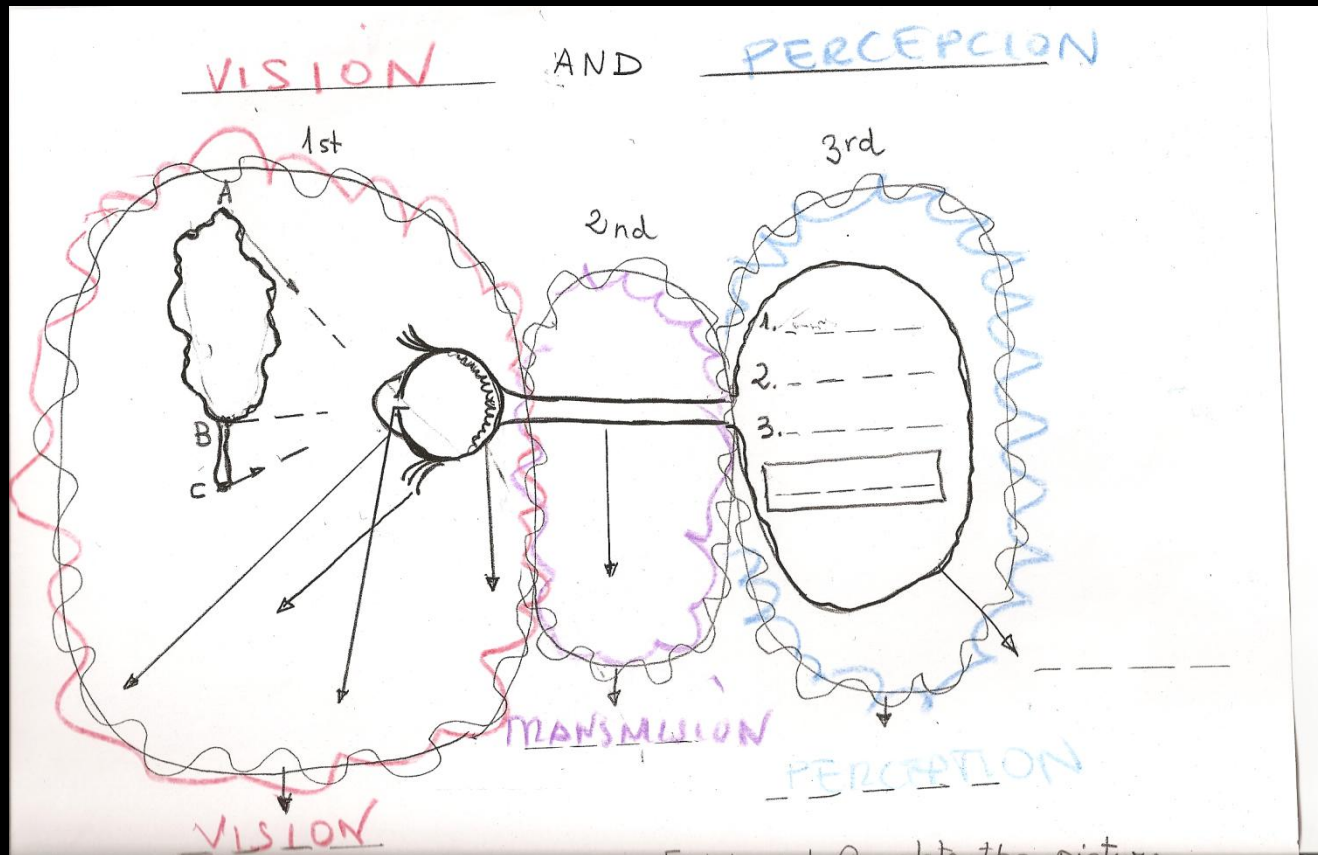 VISION AND PERCEPCION
1st
2nd
3rd
A
B
C
1.
2.
3.
TRANSMISION
PERCEPTION
VISION
the picture